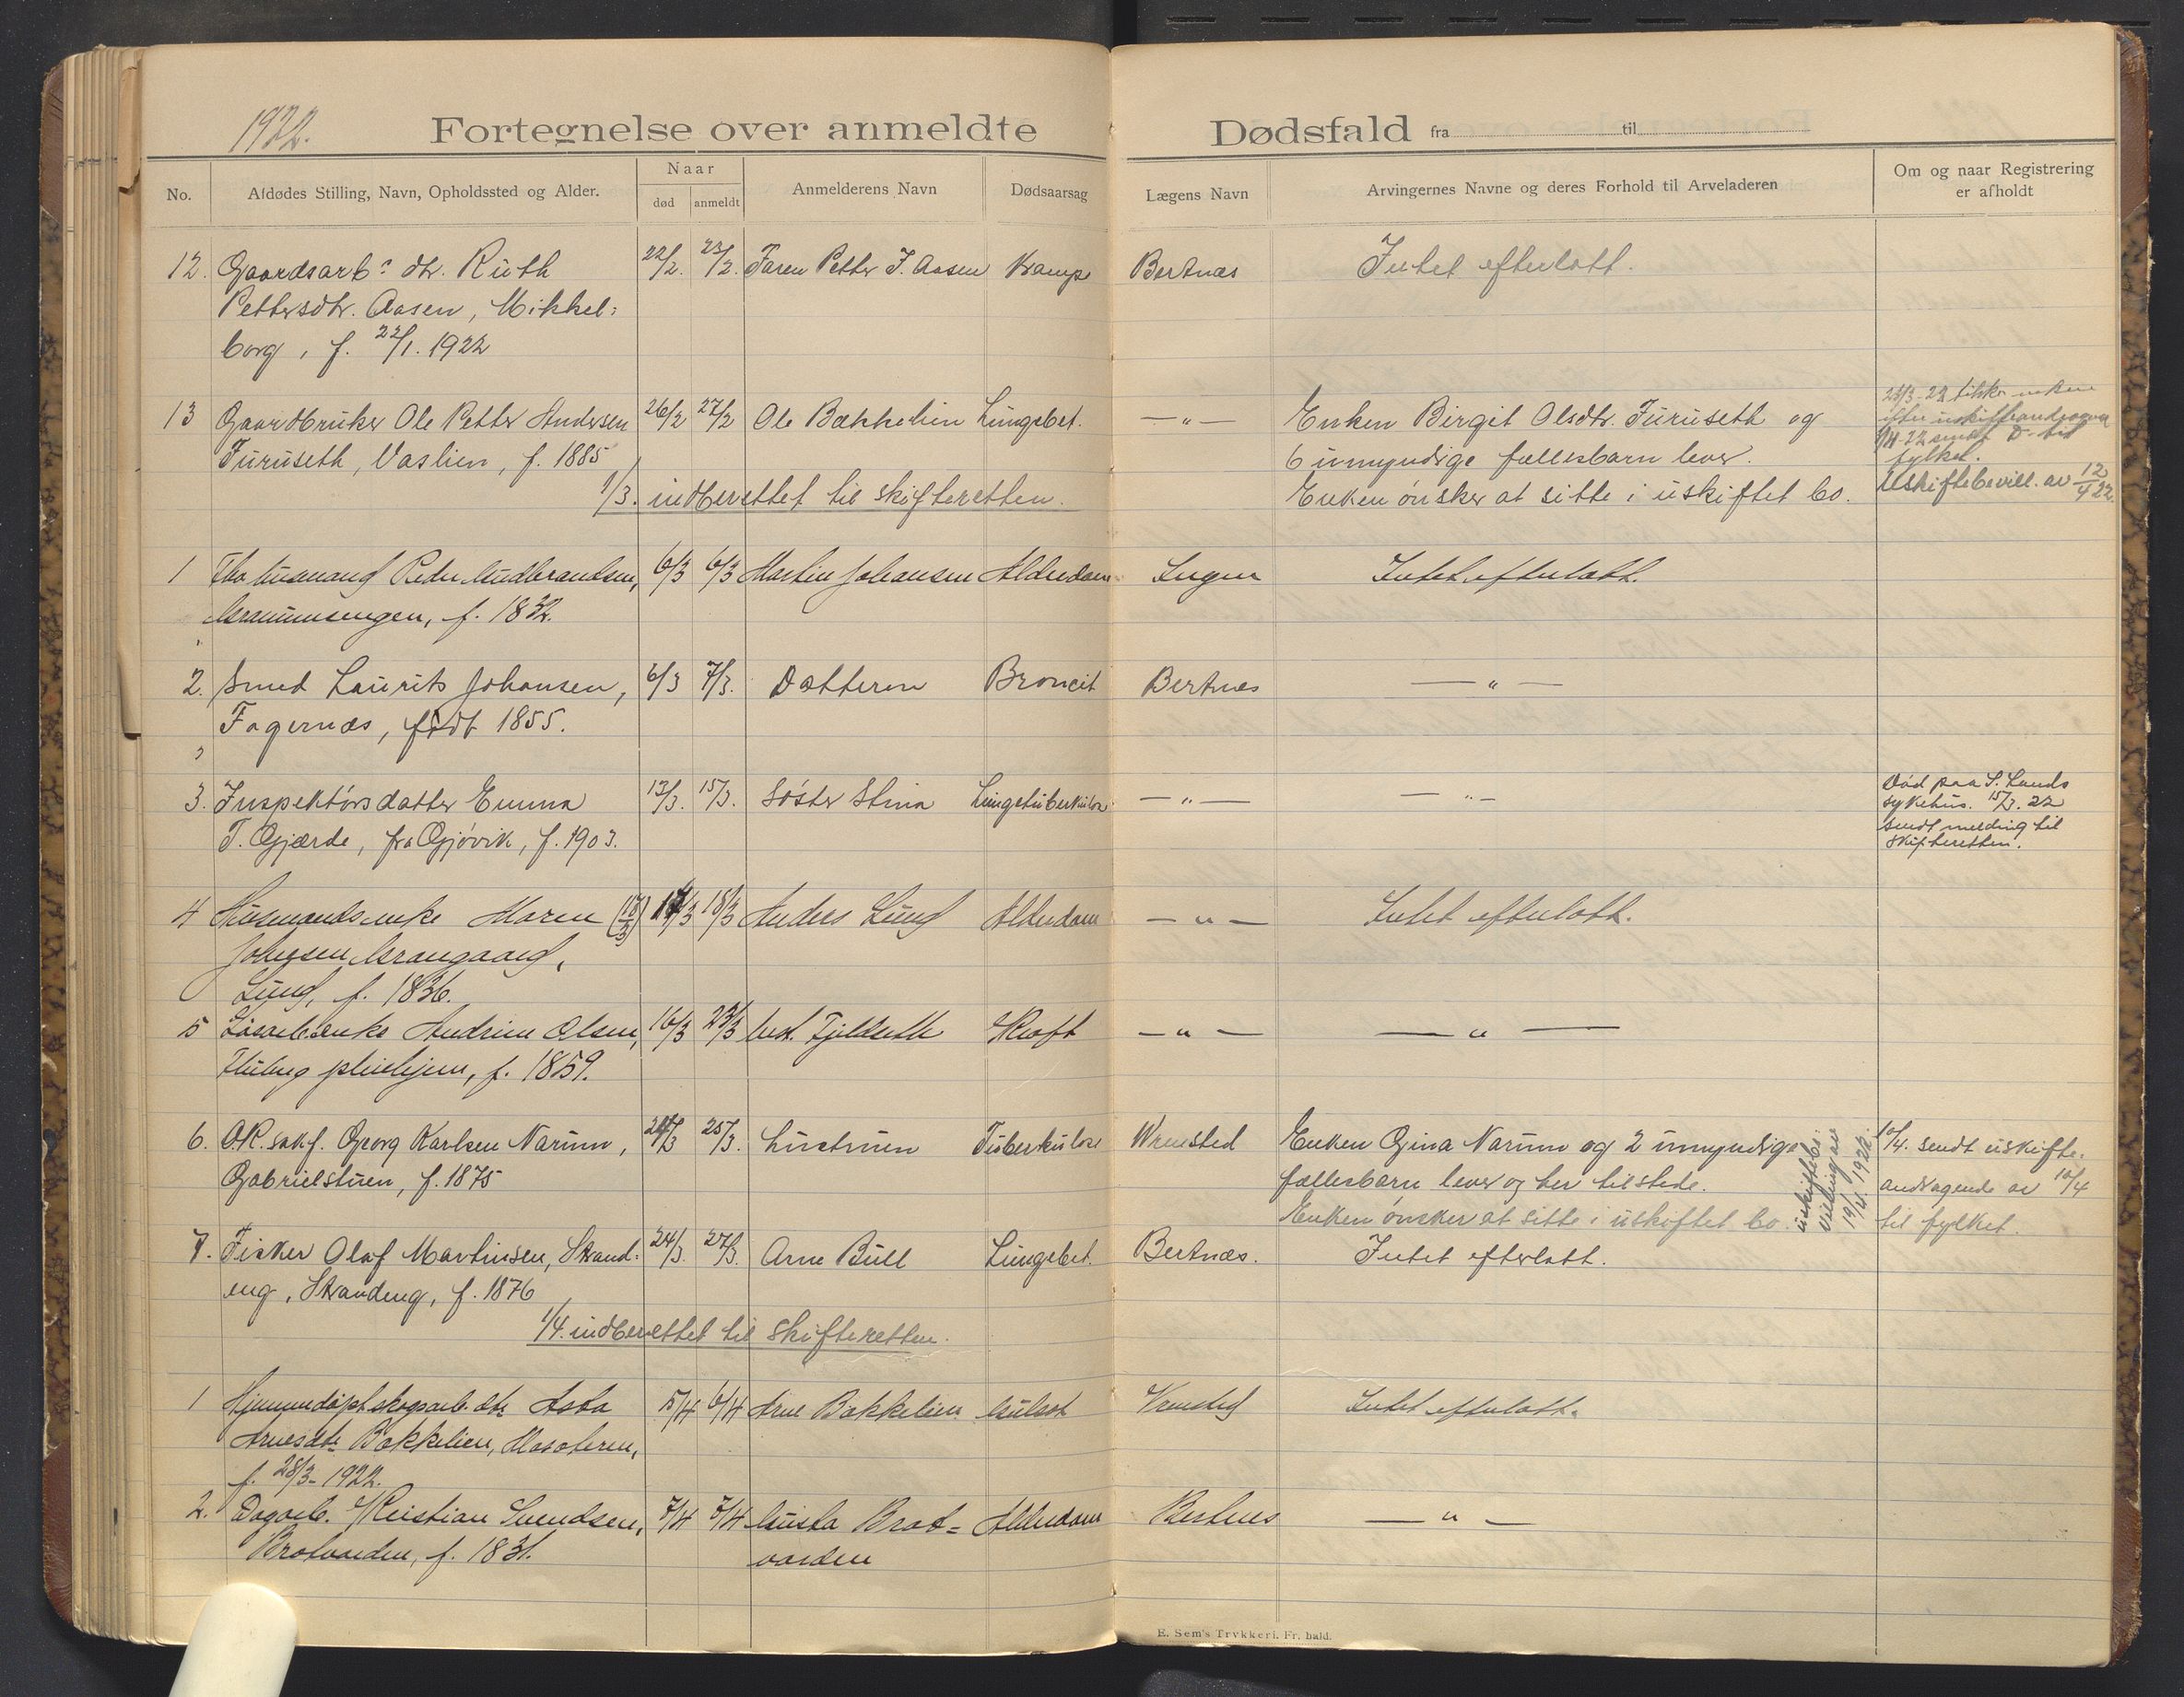 1922.
Fortegnelse over anmeldte Dødsfald fra til
No.
Afdødes Stilling, Navn, Opholdssted og Alder.
Naar
død
anmeldt
Anmelderens Navn
Dødsaarsag
Lægens Navn
Arvingernes Navne og deres Forhold til Arveladeren
Om og naar Registrering
er afholdt
12. Gaardsarb.s dtr. Ruth 22/2. 23/2. Faren Petter J. Aasen Krampe Bertnæs Intet efterlatt.
Pettersdtr. Aasen, Mikkel-
borg, f. 22/1. 1922
13 Gaardbruker Ole Petter Andersen 26/2 27/2 Ole Bækkelien Lungebet. — " — Enken Birgit Olsdtr. Furuseth og
Furuseth, Vaslien, f. 1885 6 umyndige fællesbarn lever.
1/3. indberettet til skifteretten. Enken ønsker at sitte i uskiftet bo.
til
fylket.
Uskiftebevill. av 12/4 22.
1 Peder Gudbrandsen, 6/3 6/3 Martin Johansen Alderdom Intet efterlatt.
f. 1832.
2. Smed Laurits Johansen, 6/3 7/3. Datteren Broncit Bertnæs — " —
Fagernæs, født 1855.
3. Inspektørsdatter Emma 13/3. 15/3. Søster Stina Lungetuberkulose — " — — " —
T. Gjærde, fra Gjøvik, f. 1903.
Død paa S. Lands
sykehus. 15/3. 22
sendt melding til
skifteretten.
4 Husmandsenke Maren 17/3 18/3 Anders Lund Alderdom — " — Intet efterlatt.
Lund, f. 1836.
5 Andrine Olsen, 16/3 23/3 Fjeldseth Kræft — " — — " —
pleiehjem, f. 1859.
6. O.R. sakf. Georg Karlsen Narum, 24/3 25/3. Hustruen Tuberkulose Wrensted Enken Gina Narum og 2 umyndige
Gabrielstuen, f. 1875 fællesbarn lever og her tilstede.
Enken ønsker at sitte i uskiftet bo.
uskiftebe-
villing av
19/4. 1922.
10/4. sendt uskifte-
andragende av 10/4
til fylket.
7. Fisker Olaf Martinsen, Strand- 24/3. 27/3. Arne Bull Lungebet. Bertnæs. Intet efterlatt.
eng, Strandeng, f. 1876
1/4. indberettet til skifteretten.
1 Hjemmedøpt skogsarb. dtr. Asta 5/4 6/4 Arne Bakkelien Gulsot Wrensted Intet efterlatt.
Arnesdtr. Bakkelien,
f. 28/3 - 1922.
2. Dagarb. Kristian Svendsen, 7/4 7/4 Gusta Brat- Alderdom Bertnes — " —
Bratvarden, f. 1831. varden
E. Sem's Trykkeri. Fr. hald.